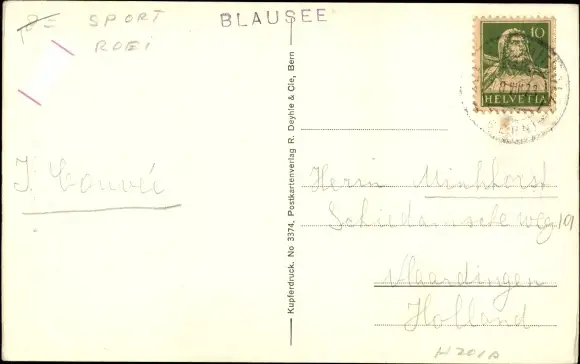 8=
SPORT
ROEI
BLAUSEE
10
HELVETIA
J. Couvé
Kupferdruck. No 3374, Postkartenverlag R. Deyhle & Cie, Bern
Herrn Minkhorst
Schiedamsche weg 19
Vlaardingen
Holland
H201A